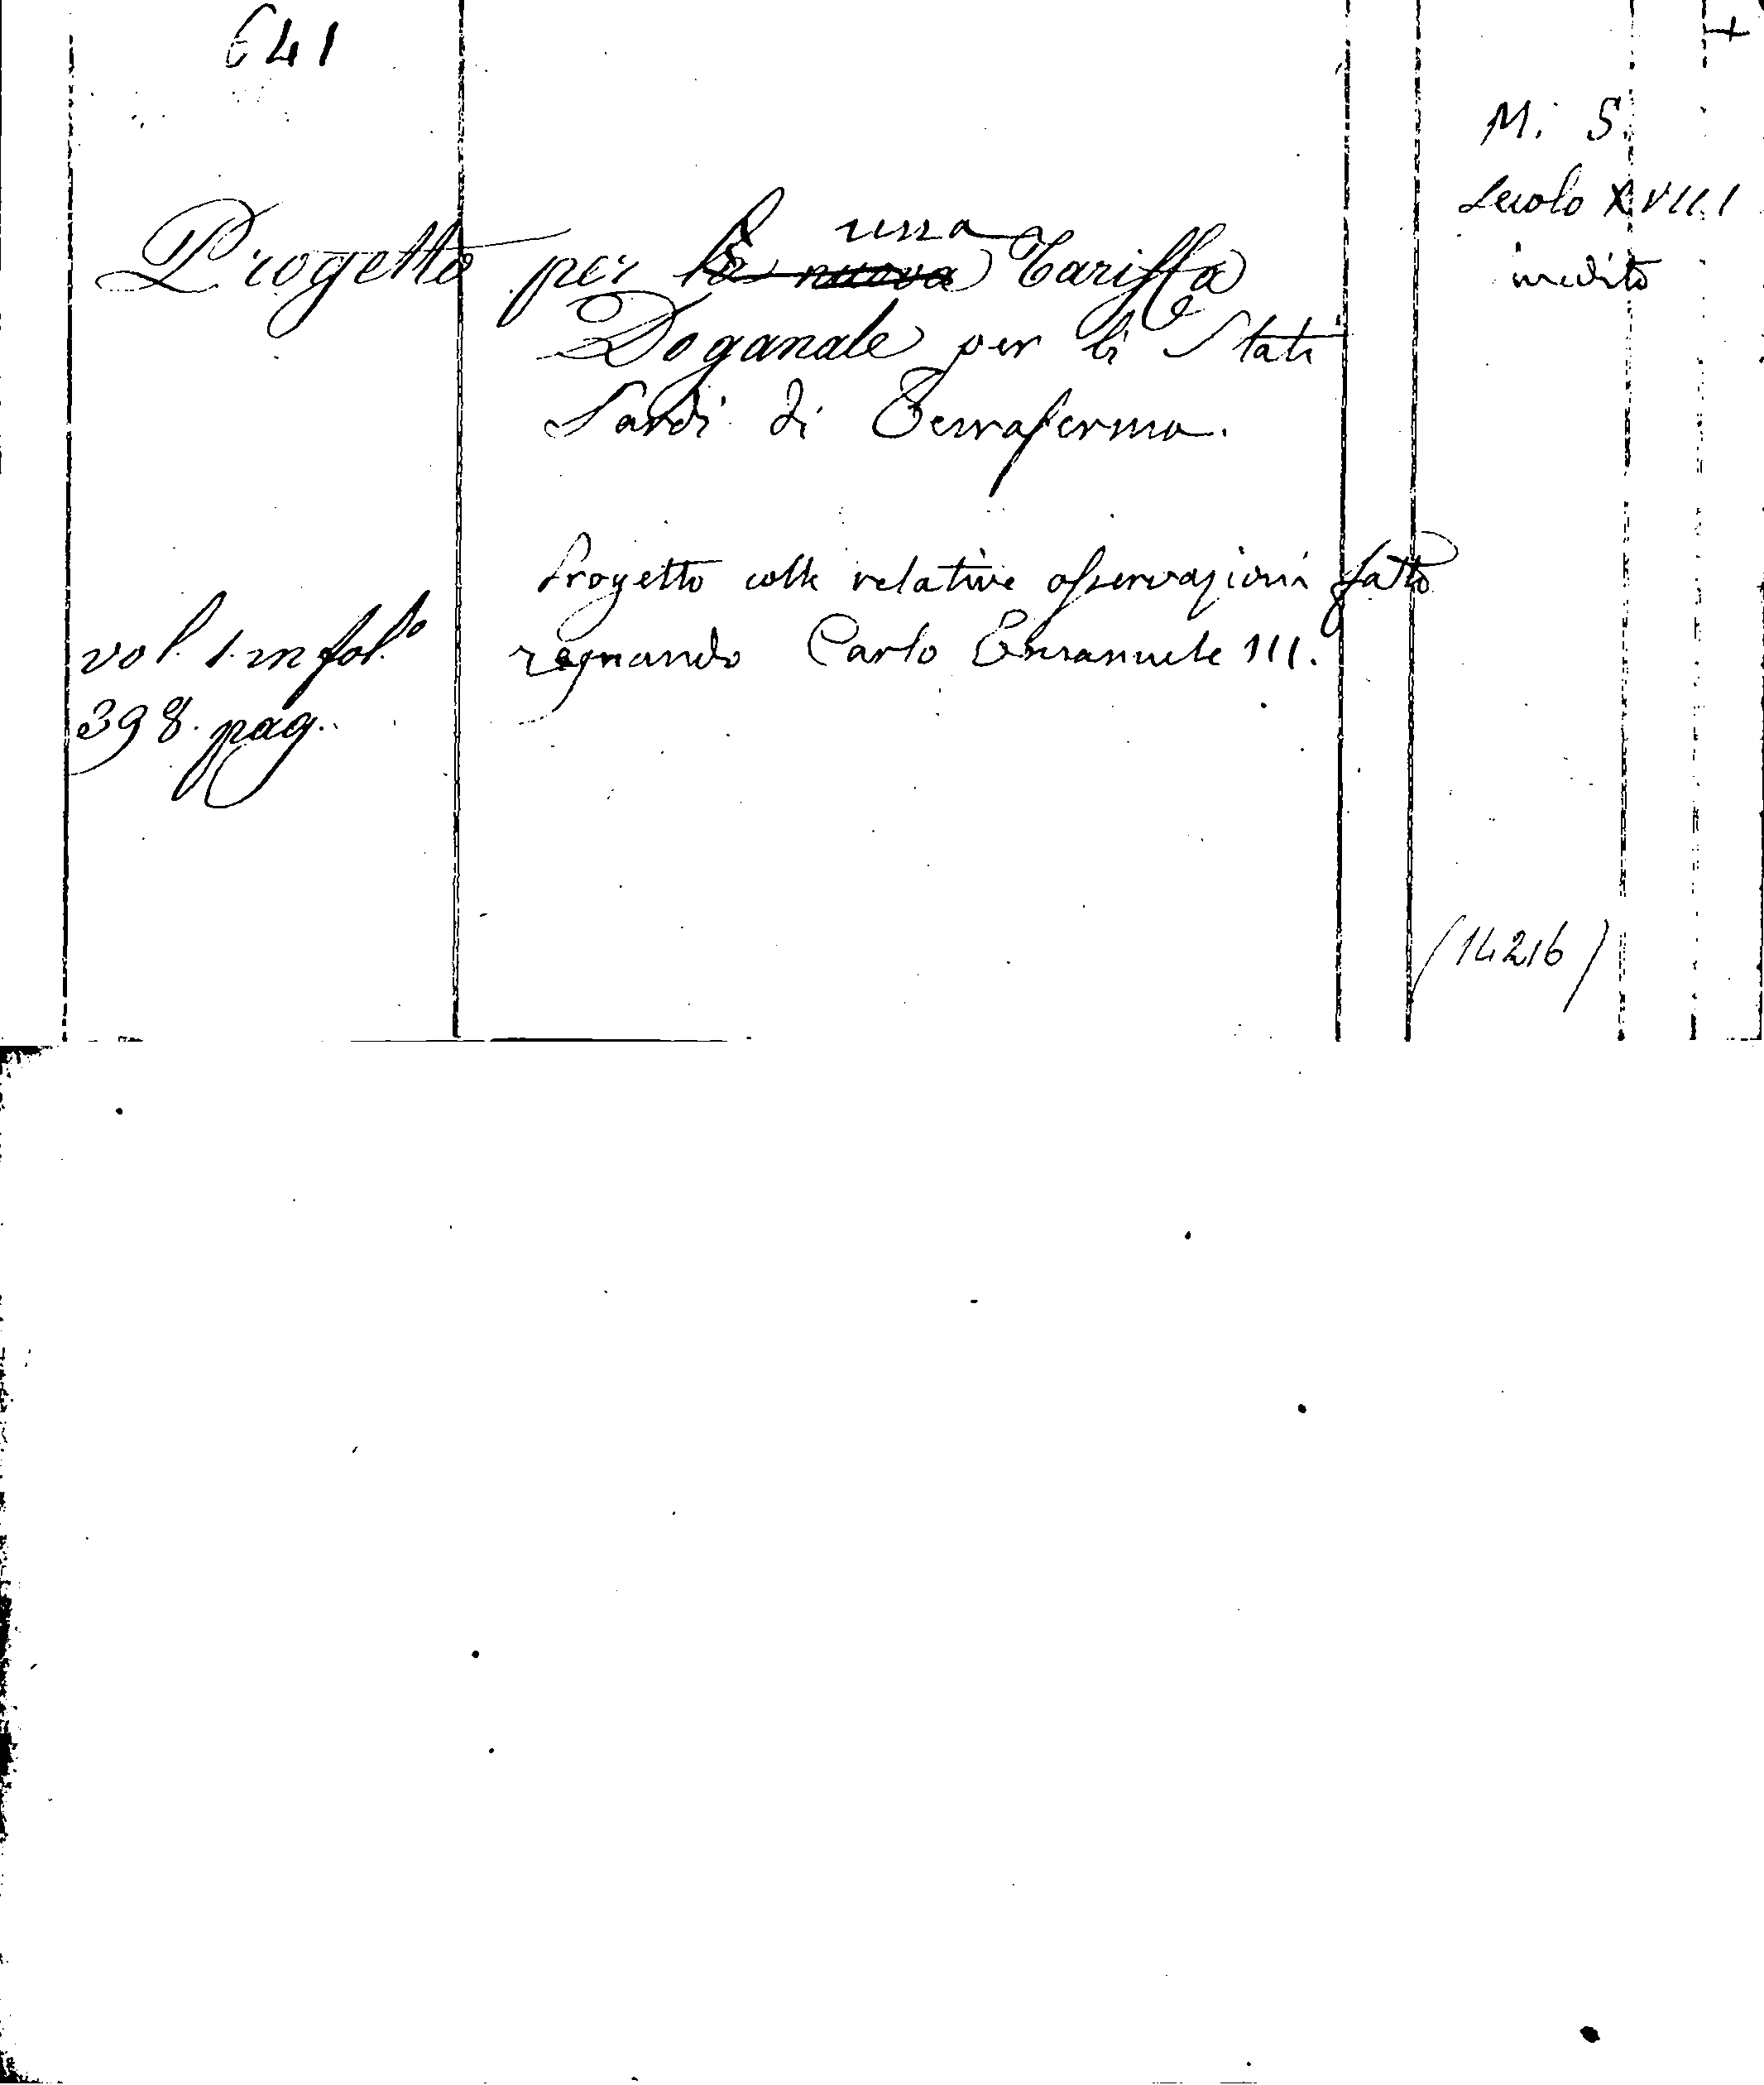 641
+
M. S.
Secolo XVIII
inedito
una
Progetto per la nuova Tariffa
Doganale per li Stati
Sardi di Terraferma.
Progetto colle relative osservazioni fatto
regnando Carlo Emanuele III.
vol. 1. in fol.º
398. pag.
(14216)